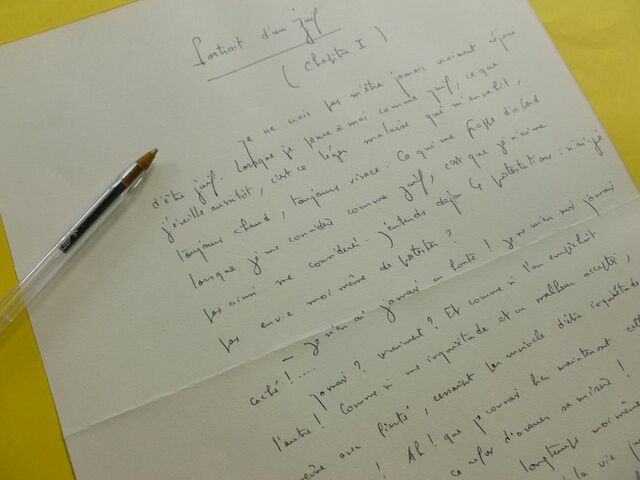 Portrait d'un juif
(Chapitre I)
Je ne crois pas m'être jamais vraiment réjoui
d'être juif. Lorsque je pense à moi comme juif, ce que
j'éveille aussitôt, c'est ce léger malaise qui m'envahit,
toujours chaud, toujours vivace. Ce qui me frappe d'abord
lorsque je me considère comme juif, c'est que je n'aime
pas ainsi me considérer. J'entends déjà les protestations : n'ai-je
pas envie moi même de protester ?
– Je n'en ai jamais eu honte ! Je ne m'en suis jamais
caché !....
Jamais ? Vraiment ? Et comme si l'un empêchait
l'autre ! Comme si une inquiétude et un malheur acceptés,
même avec fierté, cessaient par miracle d'être inquiétude
! Ah ! que je connais bien maintenant cette
ce refus d'avouer sa misère !
longtemps moi même
la vie